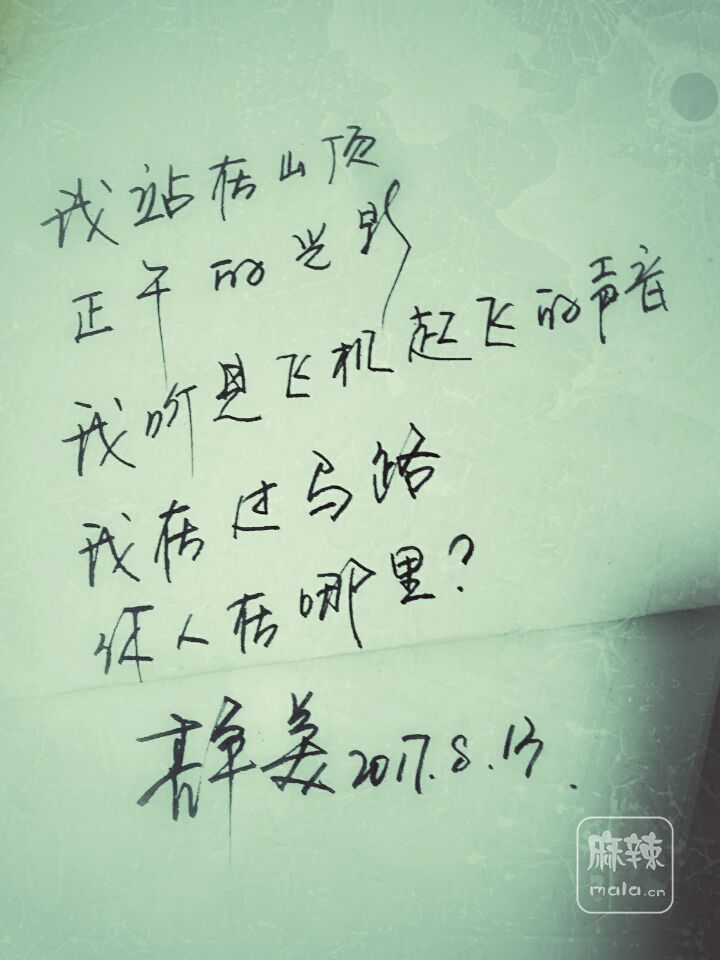 我站在山顶
正午的光影
我听见飞机起飞的声音
我在过马路
你人在哪里?
美 2017.8.13.
麻辣
mala.cn